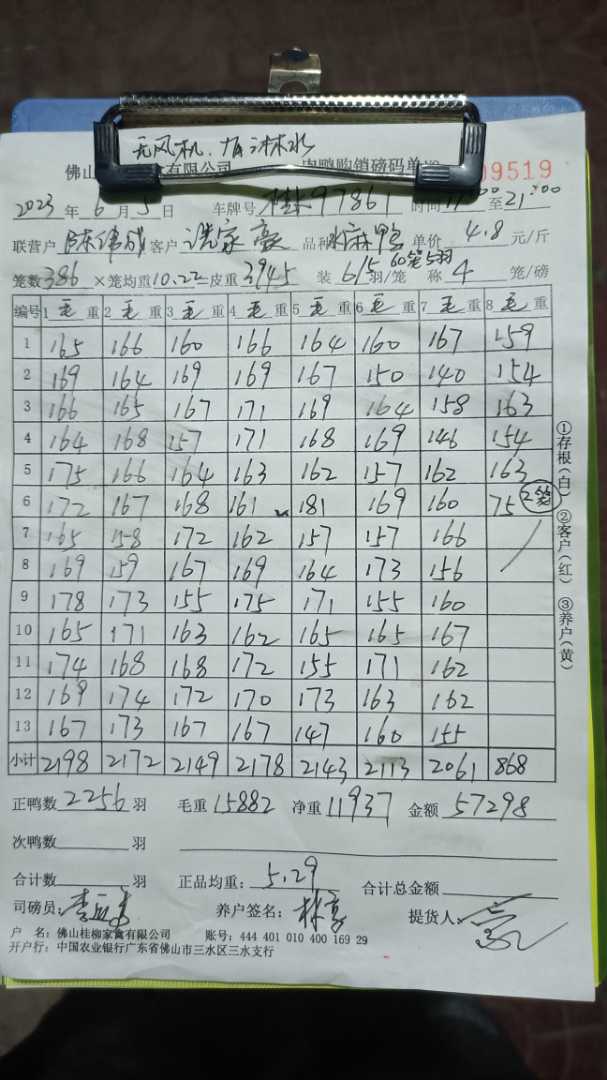 无风机、有淋水
佛山 家禽有限公司 肉鸭购销磅码单 №
09519
2023 年 6 月 5 日 车牌号 桂 97861 时间 至 21:00
联营户 陈伟成 客户 洗家豪 品种 麻鸭 单价 4.8 元/斤
笼数 386 ×笼均重 10.22 =皮重 3945 装 6/5 60笼5羽 羽/笼 称 4 笼/磅
编号 1 毛 重 2 毛 重 3 毛 重 4 毛 重 5 毛 重 6 毛 重 7 毛 重 8 毛 重
1 165 166 160 166 164 160 167 159
2 169 164 169 169 167 150 140 154
3 166 165 167 171 169 164 158 163
4 164 168 157 171 168 169 146 154
5 175 166 164 163 162 157 162 163
6 172 167 168 161 181 169 160 75 2笼
7 165 158 172 162 157 157 166
8 169 159 167 169 164 173 156
9 178 173 155 175 171 155 160
10 165 171 163 162 165 165 167
11 174 168 168 172 155 171 162
12 169 174 172 170 173 163 162
13 167 173 167 167 147 160 155
小计 2198 2172 2149 2178 2143 2113 2061 868
①存根(白) ②客户(红) ③养户(黄)
正鸭数 2256 羽 毛重 15882 净重 11937 金额 57298
次鸭数 羽
合计数 羽 正品均重: 5.29 合计总金额
司磅员: 养户签名: 提货人:
户 名: 佛山桂柳家禽有限公司 账号: 444 401 010 400 169 29
开户行: 中国农业银行广东省佛山市三水区三水支行